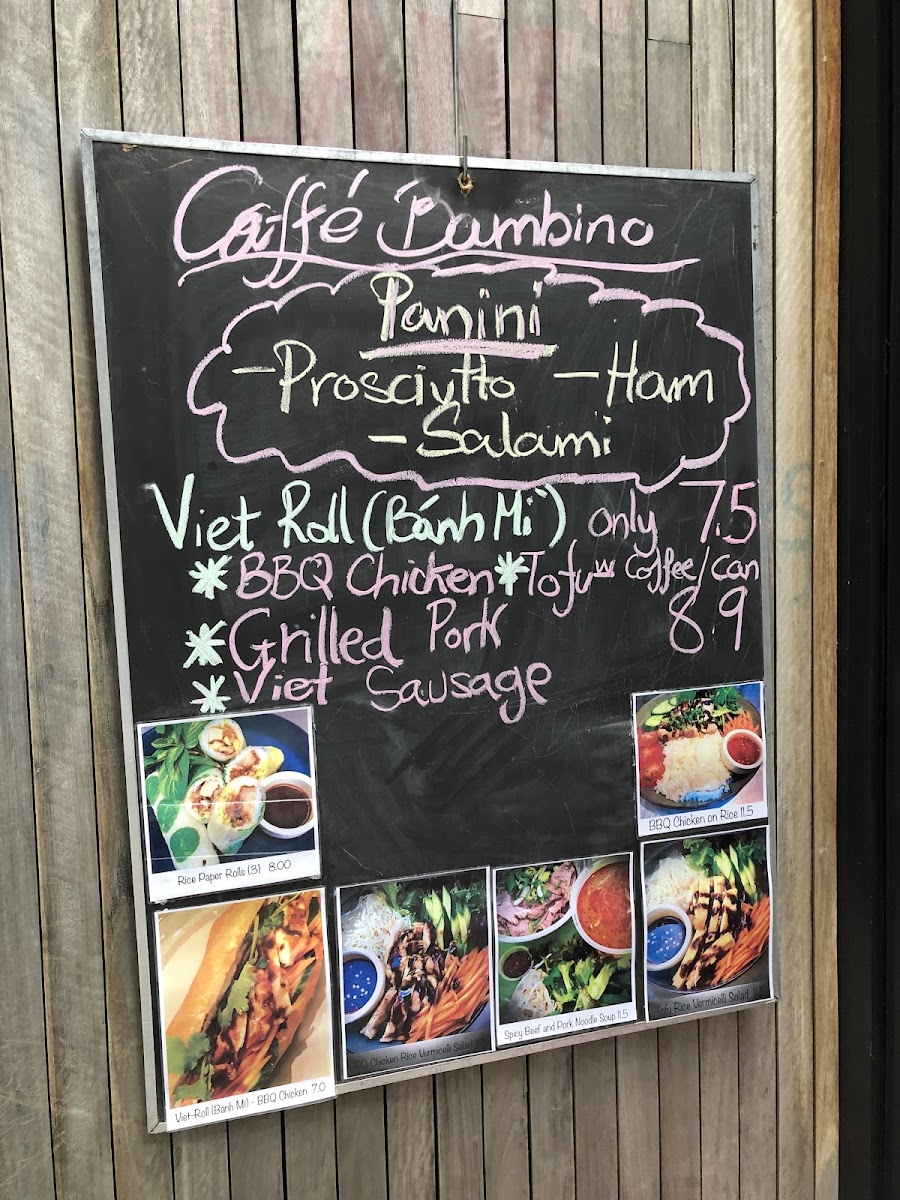 Caffé Bambino
Panini
- Prosciutto - Ham
- Salami
Viet Roll (Bánh Mì) only 7.5
* BBQ Chicken * Tofu w coffee/can
* Grilled Pork 8.9
* Viet Sausage
Rice Paper Rolls (3) 8.00
BBQ Chicken on Rice 11.5
Viet-Roll (Banh Mi) - BBQ Chicken 7.0
Chicken Rice Vermicelli Salad
Spicy Beef and Pork Noodle Soup 11.5
Rice Vermicelli Salad